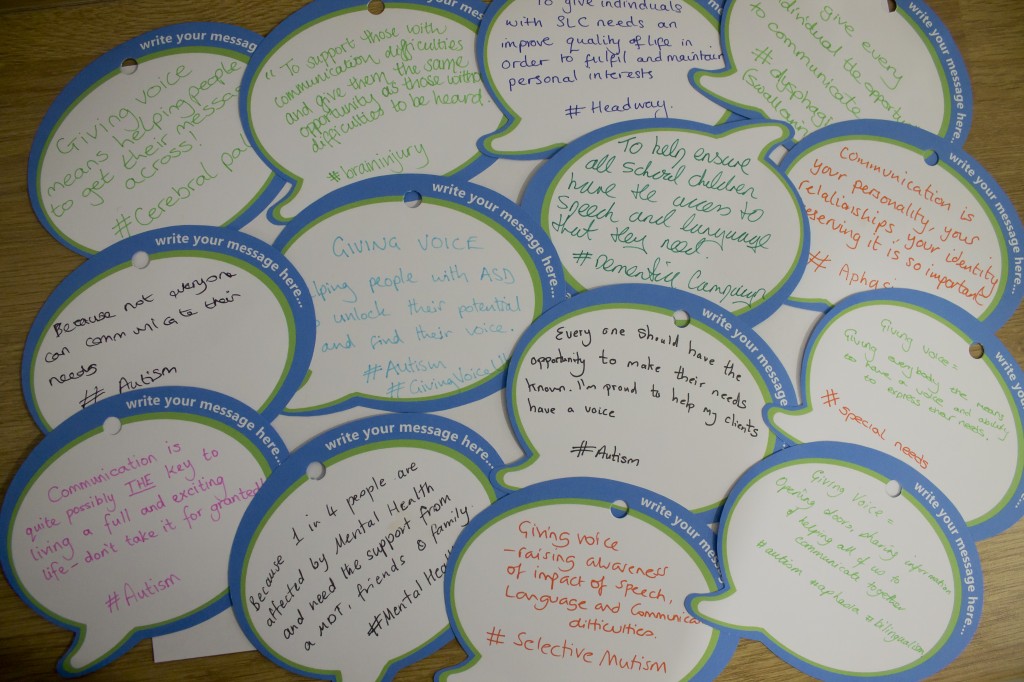 write your message
Giving voice
means helping people
to get their message
across!
#Cerebral
"To support those with
communication difficulties
and give them the same
opportunity as those
difficulties to be heard.
#braininjury
To give individuals
with SLC needs an
improve quality of life in
order to fulfil and maintain
personal interests
#Headway.
write your message here...
give every
individual the
to communicate
write your message here...
To help ensure
all school children
have the access to
Speech and language
that they need.
#Dementia Campaign
write your message here...
Communication is
your personality, your
relationships, your identity
it is so important
write your message here...
Because not everyone
can communicate their
needs
#Autism
write your message here...
GIVING VOICE
people with ASD
unlock their potential
and find their voice.
#Autism
write your message here...
Every one should have the
opportunity to make their needs
known. I'm proud to help my clients
have a voice
#Autism
write your message here...
Giving voice =
Giving everybody the means
to have a voice and ability
to express their needs.
#special needs
write your message here...
Communication is
quite possibly THE key to
living a full and exciting
life - don't take it for granted!
#Autism
write your message here...
Because 1 in 4 people are
affected by Mental Health
and need the support from
a MDT, friends & family.
#Mental
write your message here...
Giving voice
- raising awareness
of impact of speech,
Language and
difficulties.
# Selective Mutism
write your message here...
Giving Voice =
Opening doors, sharing information
& helping all of us to
communicate together
#autism #aphasia #bilingualism